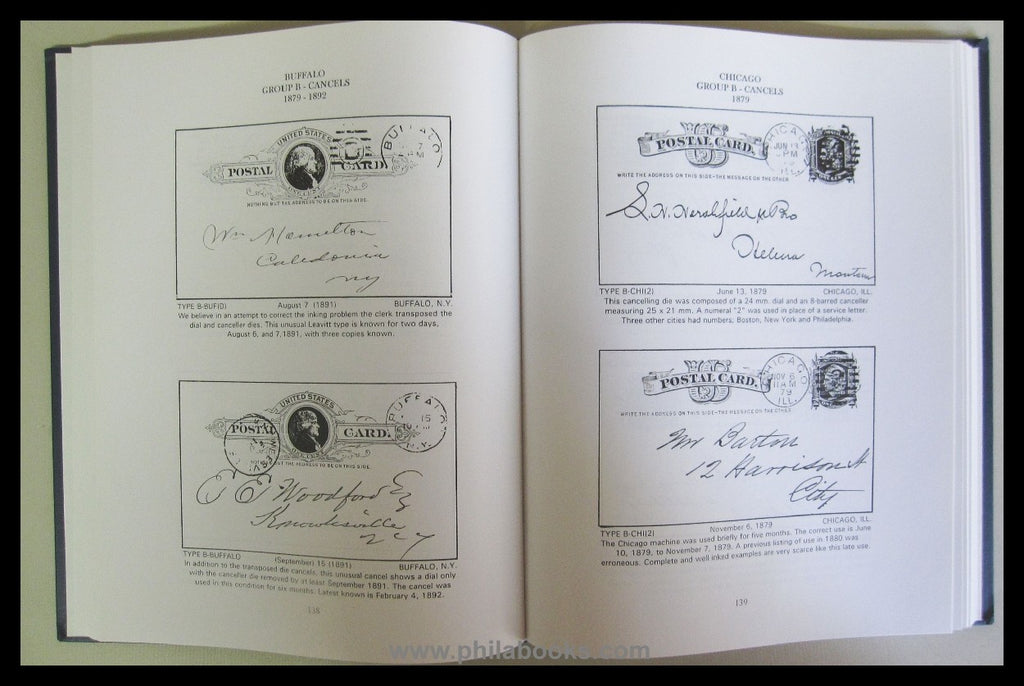 BUFFALO
GROUP B - CANCELS
1879 - 1892
UNITED STATES
POSTAL CARD.
BUFFALO
7
NOTHING BUT THE ADDRESS TO BE ON THIS SIDE.
Wm Hamilton
Caledonia
NY
TYPE B-BUF(D) August 7 (1891) BUFFALO, N.Y.
We believe in an attempt to correct the inking problem the clerk transposed the
dial and canceller dies. This unusual Leavitt type is known for two days,
August 6, and 7,1891, with three copies known.
UNITED STATES
POSTAL CARD.
BUFFALO
15
N.Y.
BUT THE ADDRESS TO BE ON THIS SIDE
Woodford
Knowlesville
TYPE B-BUFFALO (September) 15 (1891) BUFFALO, N.Y.
In addition to the transposed die cancels, this unusual cancel shows a dial only
with the canceller die removed by at least September 1891. The cancel was
used in this condition for six months. Latest known is February 4, 1892.
138
CHICAGO
GROUP B - CANCELS
1879
POSTAL CARD.
CHICA
JUN 13
PM
ILL.
WRITE THE ADDRESS ON THIS SIDE-THE MESSAGE ON THE OTHER
Helena
Montana
TYPE B-CHI(2) June 13, 1879 CHICAGO, ILL.
This cancelling die was composed of a 24 mm. dial and an 8-barred canceller
measuring 25 x 21 mm. A numeral "2" was used in place of a service letter.
Three other cities had numbers; Boston, New York and Philadelphia.
POSTAL CARD.
CHICAGO
NOV 6
11 AM
79
ILL.
WRITE THE ADDRESS ON THIS SIDE-THE MESSAGE ON THE OTHER
Mr Barton
12 Harrison St
City
TYPE B-CHI(2) November 6, 1879 CHICAGO, ILL.
The Chicago machine was used briefly for five months. The correct use is June
10, 1879, to November 7, 1879. A previous listing of use in 1880 was
erroneous. Complete and well inked examples are very scarce like this late use.
139
www.philabooks.com